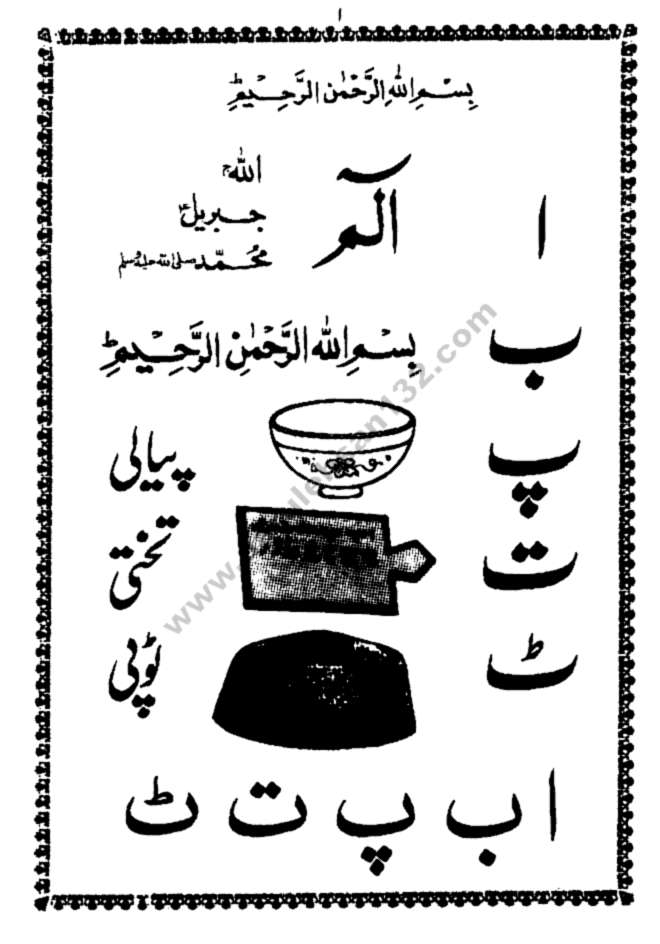 ۱
بِسْمِ اللّٰهِ الرَّحْمٰنِ الرَّحِيْمِ ط
ا الٓمّ
اللّٰهُ ج
جبریلؑ
مُحَمَّد صلی اللہ علیہ وسلم
ب بِسْمِ اللّٰهِ الرَّحْمٰنِ الرَّحِيْمِ ط
پ پیالی
ت تختی
ٹ ٹوپی
ا ب پ ت ٹ